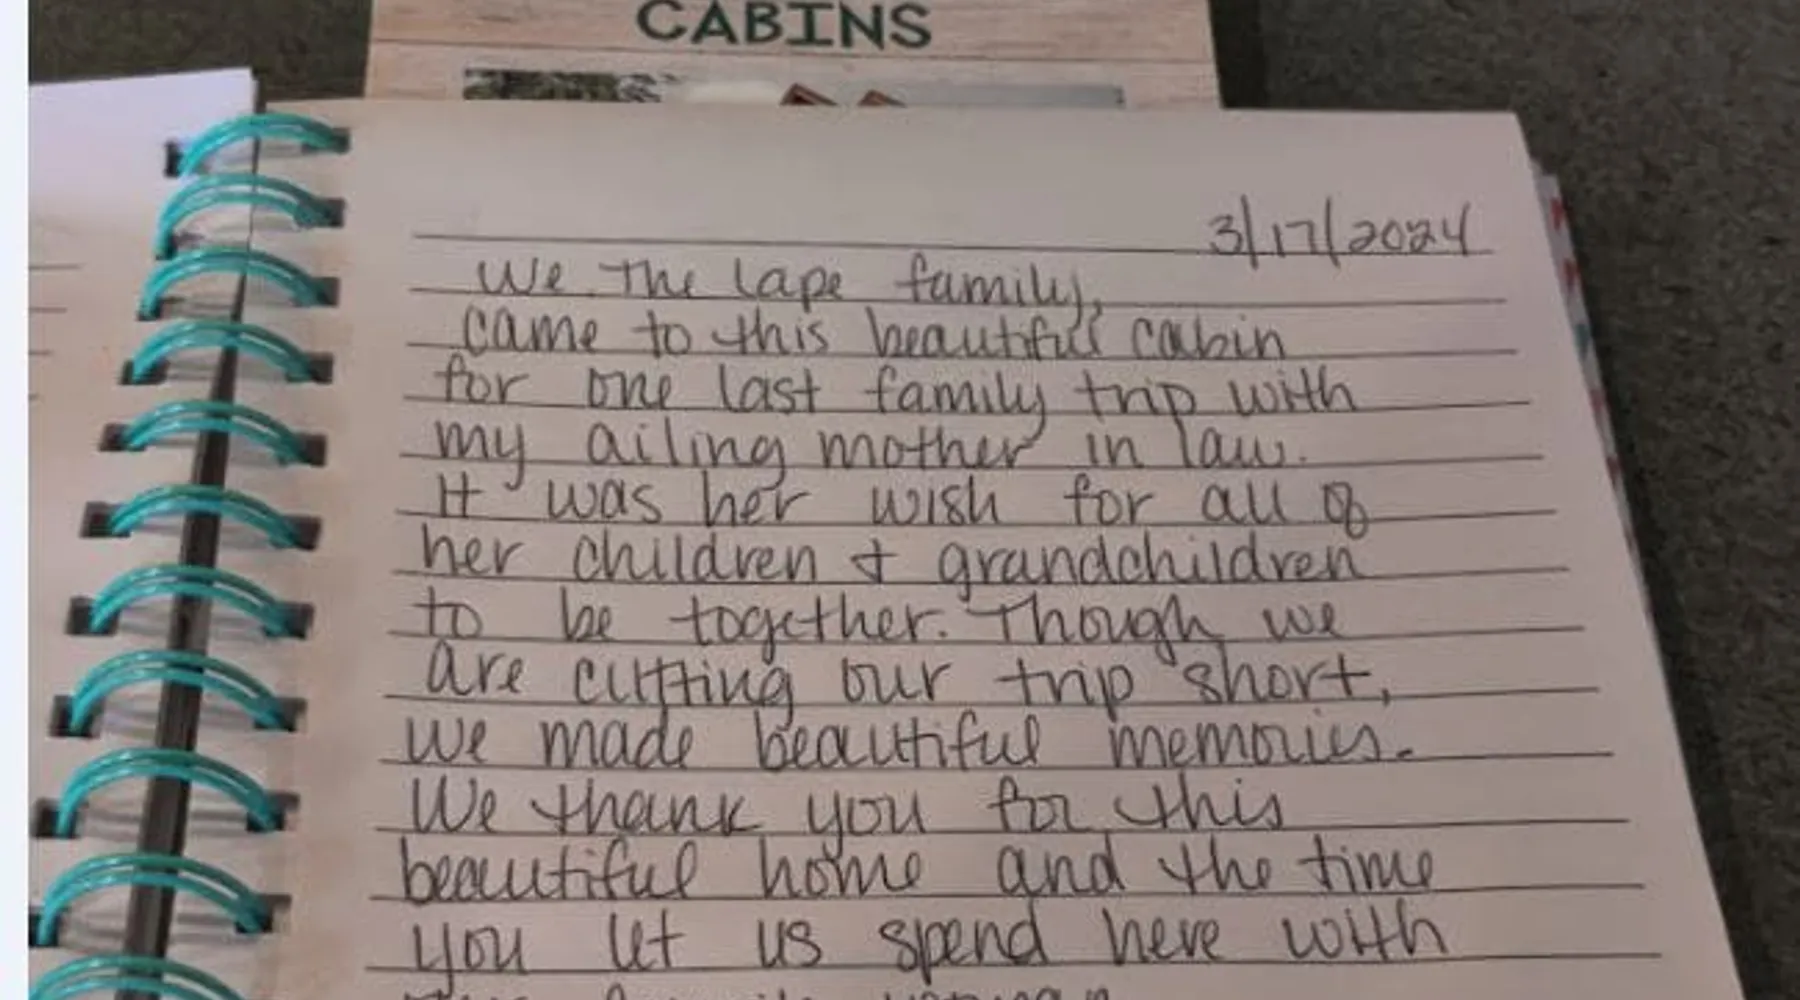 CABINS
3/17/2024
We The Lape family,
came to this beautiful cabin
for one last family trip with
my ailing mother in law.
It was her wish for all of
her children + grandchildren
to be together. Though we
are cutting our trip short,
we made beautiful memories.
We thank you for this
beautiful home and the time
you let us spend here with